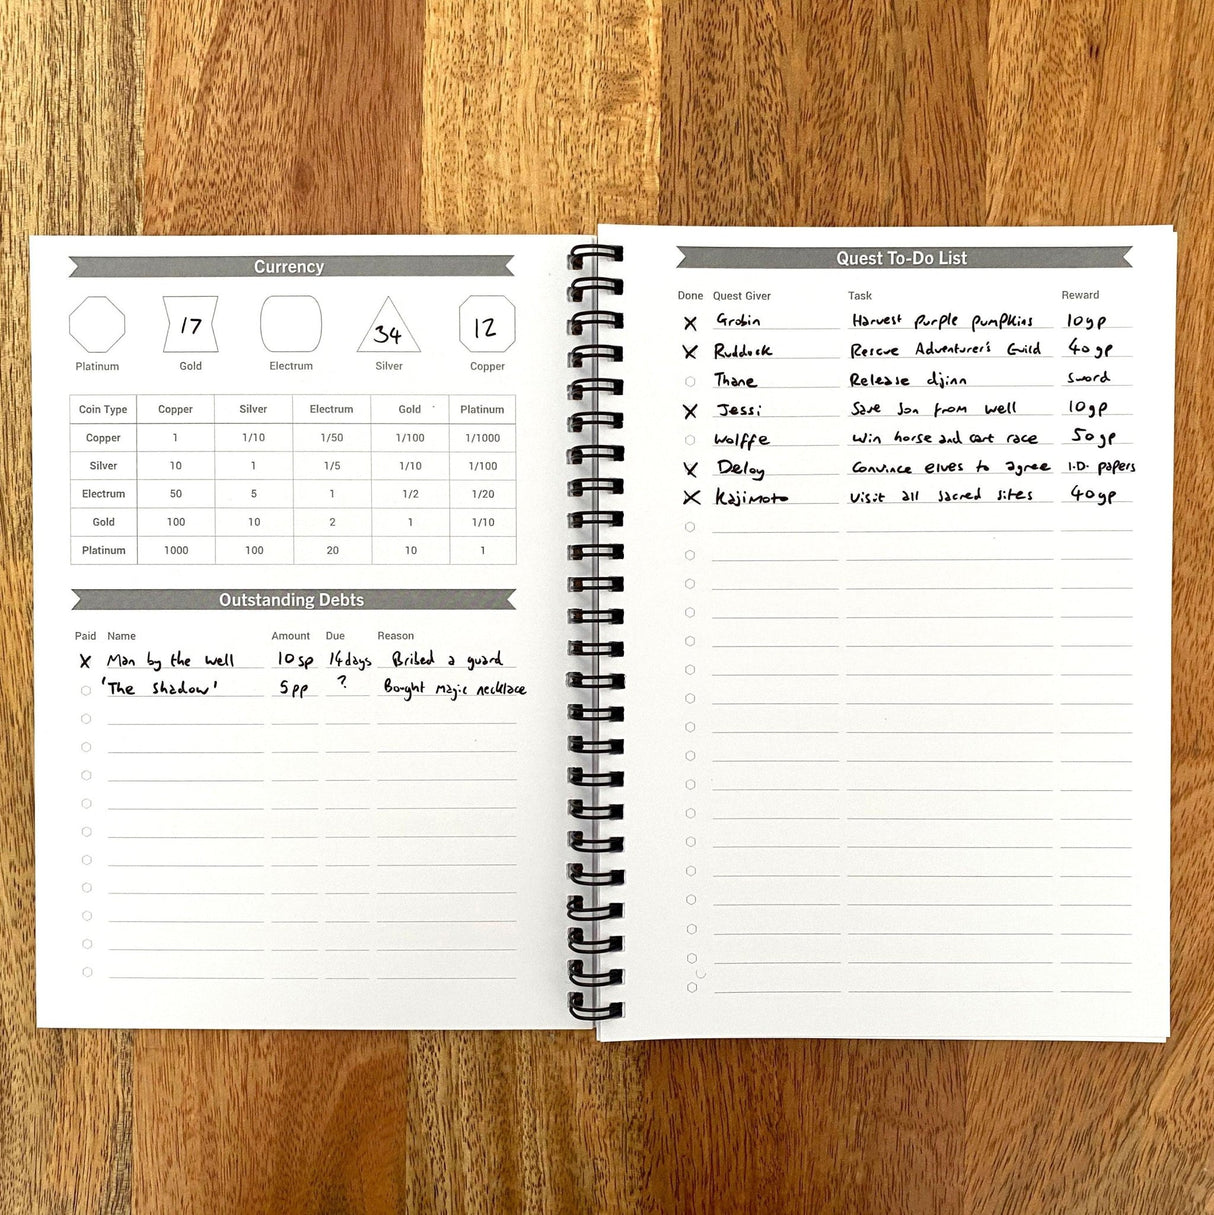 Currency
17 34 12
Platinum Gold Electrum Silver Copper
Coin Type Copper Silver Electrum Gold Platinum
Copper 1 1/10 1/50 1/100 1/1000
Silver 10 1 1/5 1/10 1/100
Electrum 50 5 1 1/2 1/20
Gold 100 10 2 1 1/10
Platinum 1000 100 20 10 1
Outstanding Debts
Paid Name Amount Due Reason
X Man by the well 10sp 14days Bribed a guard
'The shadow' 5pp ? Bought magic necklace
Quest To-Do List
Done Quest Giver Task Reward
X Grobin Harvest purple pumpkins 10gp
X Ruddock Rescue Adventurer's Guild 40gp
Thane Release djinn sword
X Jessi Save son from well 10gp
Wolffe Win horse and cart race 50gp
X Deloy Convince elves to agree I.D. papers
X Kajimoto Visit all sacred sites 40gp